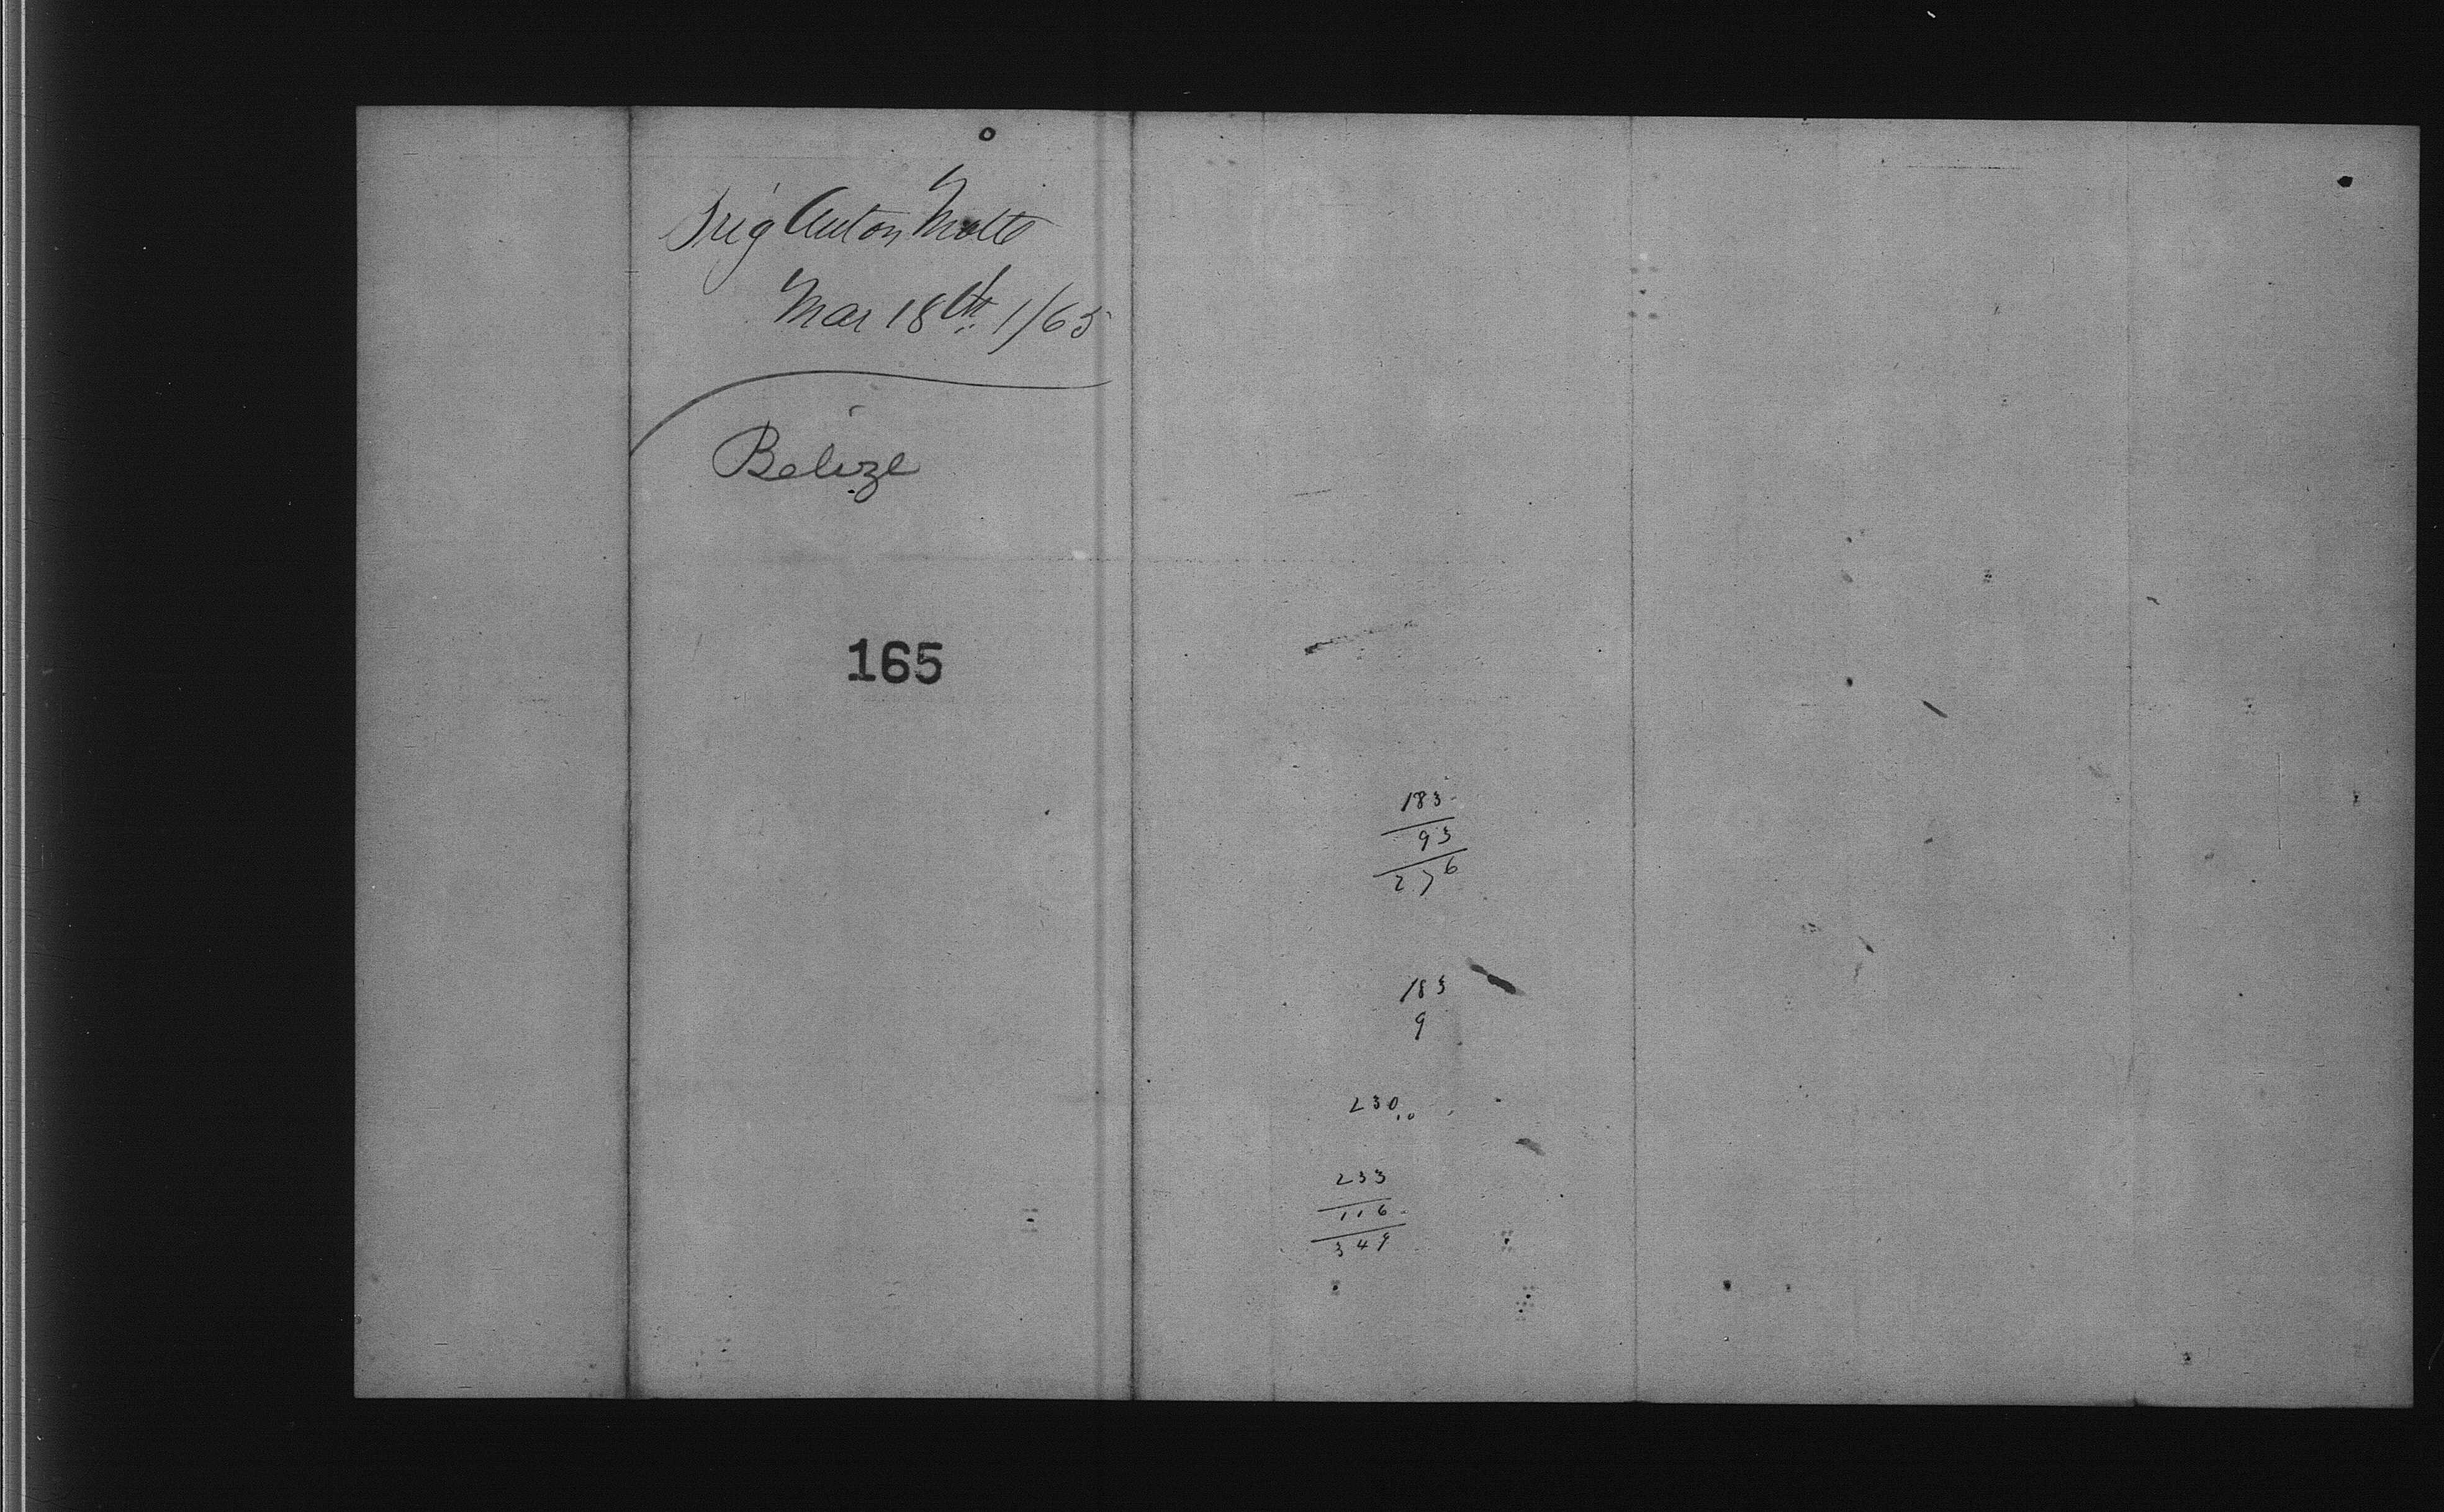 Brig Anton Molto
Mar 18th 1/65
Belize
165
183
93
276
183
9
230
233
116
349